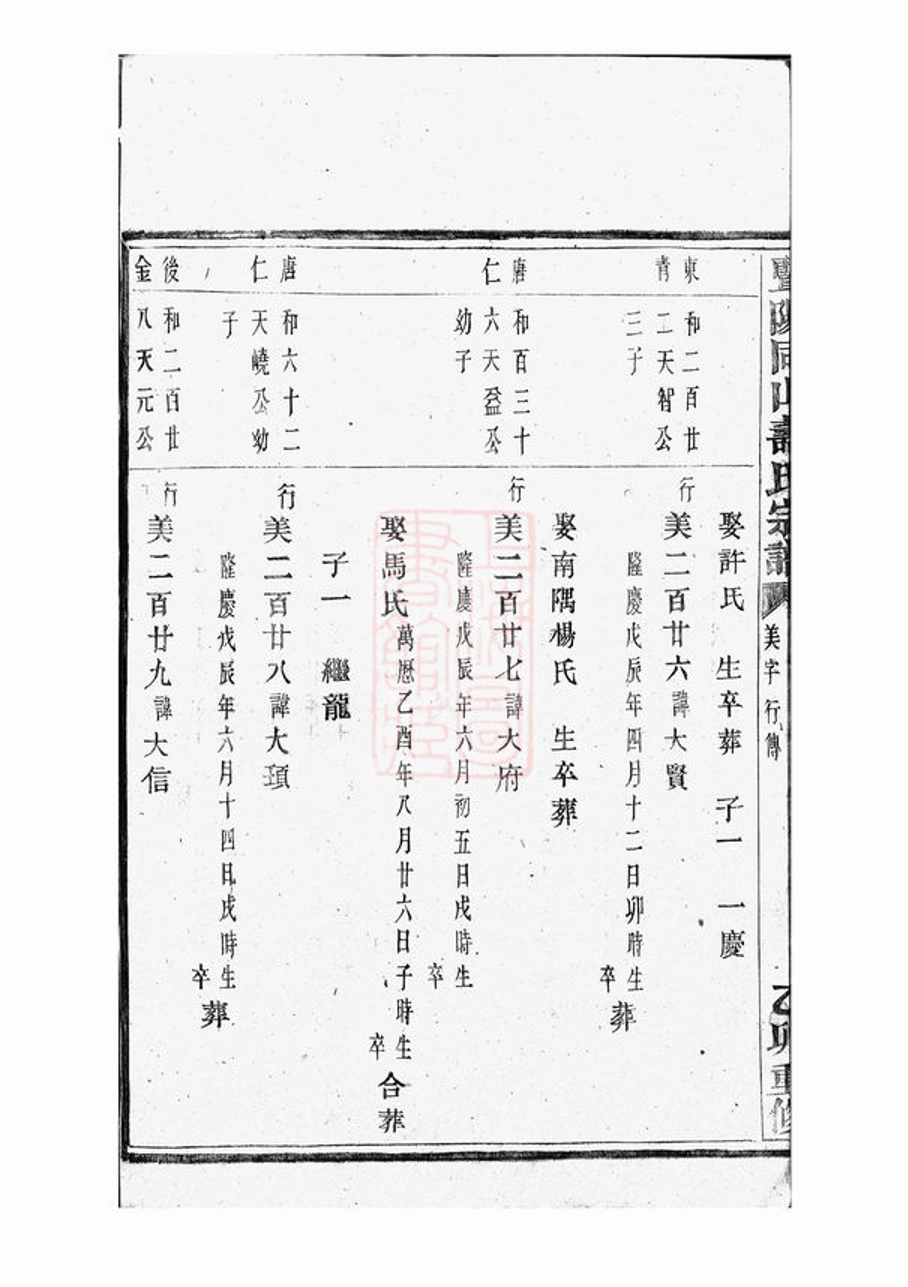 暨陽同山壽氏宗譜
美字行傳
乙卯重修
娶許氏 生卒葬 子一 一慶
東青
和二百廿二天智公三子
行美二百廿六諱大賢
隆慶戊辰年四月十二日卯時生 卒 葬
娶南隅楊氏 生卒葬
唐仁
和百三十六天益公幼子
行美二百廿七諱大府
隆慶戊辰年六月初五日戌時生 卒
娶馬氏萬厯乙酉年八月廿六日子時生 卒 合葬
子一 繼龍
唐仁
和六十二天嶢公幼子
行美二百廿八諱大頊
隆慶戊辰年六月十四日戌時生 卒 葬
後金
和二百廿八天元公
行美二百廿九諱大信